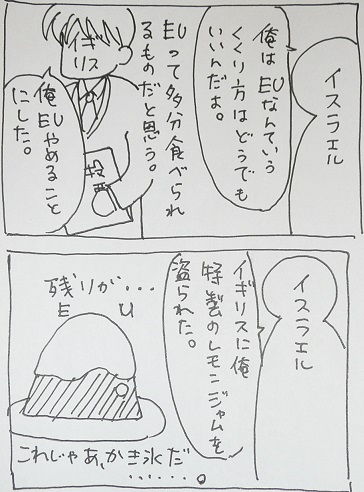 イスラエル
俺はEUなんていう
くくり方はどうでも
いいんだよ。
EUって多分食べられ
るものだと思う。
イギ
リス
俺EUやめること
にした。
イスラエル
イギリスに俺
特製のレモンジャムを
盗られた。
残りが...
E U
これじゃあ、かき氷だ
......。